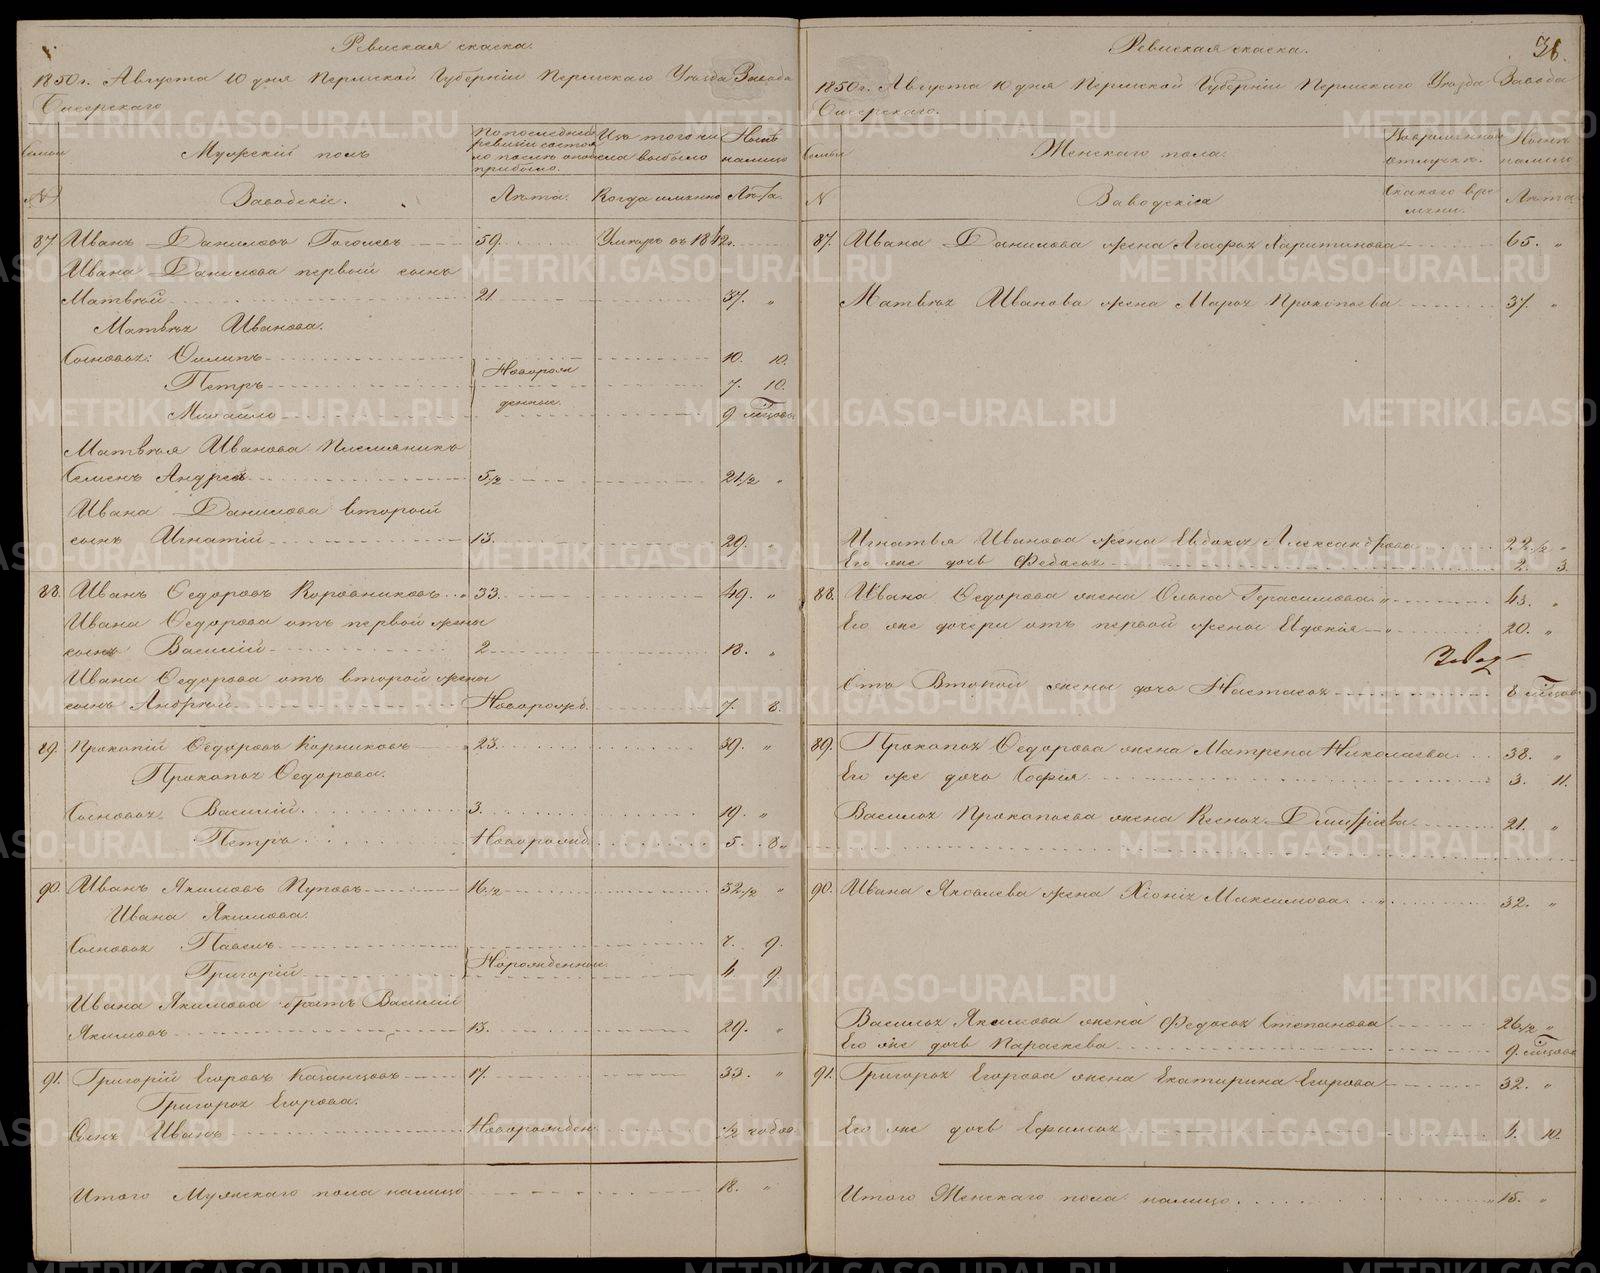 Ревиская скаска.
1850 г. Августа 10 дня Пермской Губернiи Пермскаго Уезда Завода
Бисерскаго
Семьи
Мужскiй полъ
По последней ревизiи состояло и после оной прибыло.
Изъ того числа выбыло
Ныне налицо
№
Заводскiе.
Лета.
Когда именно
Лета.
87. Иванъ Даниловъ Гоголевъ 59. Умеръ въ 1842.
Ивана Данилова первый сынъ
Матвей 21. 37. "
Матвея Иванова.
Сыновья: Филипъ 10. 10.
Новорож
Петръ 7. 10.
денные.
Михайло 9 месяцовъ
Матвея Иванова Племяникъ
Семенъ Андреевъ 5 1/2 21 1/2 "
Ивана Данилова второй
сынъ Игнатiй 13. 29. "
88. Иванъ Федоровъ Коровниковъ 33. 49. "
Ивана Федорова отъ первой жены
сынъ Василiй 2 18. "
Ивана Федорова отъ второй жены
сынъ Андрей Новорожд. 7. 8.
89. Прокопiй Федоровъ Корниковъ 23. 39. "
Прокопья Федорова.
Сыновья. Василiй 3. 19. "
Петръ Новорожд. 5. 8 "
90. Иванъ Якимовъ Пуповъ 16 1/2 32 1/2 "
Ивана Якимова.
Сыновья Павелъ 7. 9.
Новорожденные.
Григорiй 4. 9.
Ивана Якимова братъ Василiй
Якимовъ 13. 29. "
91. Григорiй Егоровъ Казанцовъ 17. 33. "
Григорья Егорова.
Сынъ Иванъ Новорожден. 1/2 годов.
Итого Мужскаго пола налицо 18. "
36.
Ревиская скаска.
1850 г. Августа 10 дня Пермской Губернiи Пермскаго Уезда Завода
Бисерскаго.
Семьи
Женскаго пола.
Во временной отлучке.
Ныне налицо
N
Заводскiя
Съ какого времени.
Лета
87. Ивана Данилова жена Агафья Харитонова 65. "
Матвея Иванова жена Марья Прокопьева 37. "
Игнатья Иванова жена Евдокья Александрова 22 1/2 "
Его же дочь Федосья 2. 3.
88. Ивана Федорова жена Ольга Герасимова 43. "
Его же дочери отъ первой жены Евдокiя 20. "
Отъ Второй жены дочь Настасья 8 месяцовъ
89. Прокопья Федорова жена Матрена Николаева 38. "
Его же дочь Софiя 3. 11.
Василья Прокопьева жена Ксенья Дмитрiева 21. "
90. Ивана Яковлева жена Хiонiя Максимова. 32. "
Василья Якимова жена Федосья Степанова 26 1/2 "
Его же дочь Параскева 9. месяцовъ
91. Григорья Егорова жена Екатирина Егорова 32. "
Его же дочь Ефимья 4. 10.
Итого Женскаго пола налицо 15. "
METRIKI.GASO-URAL.RU